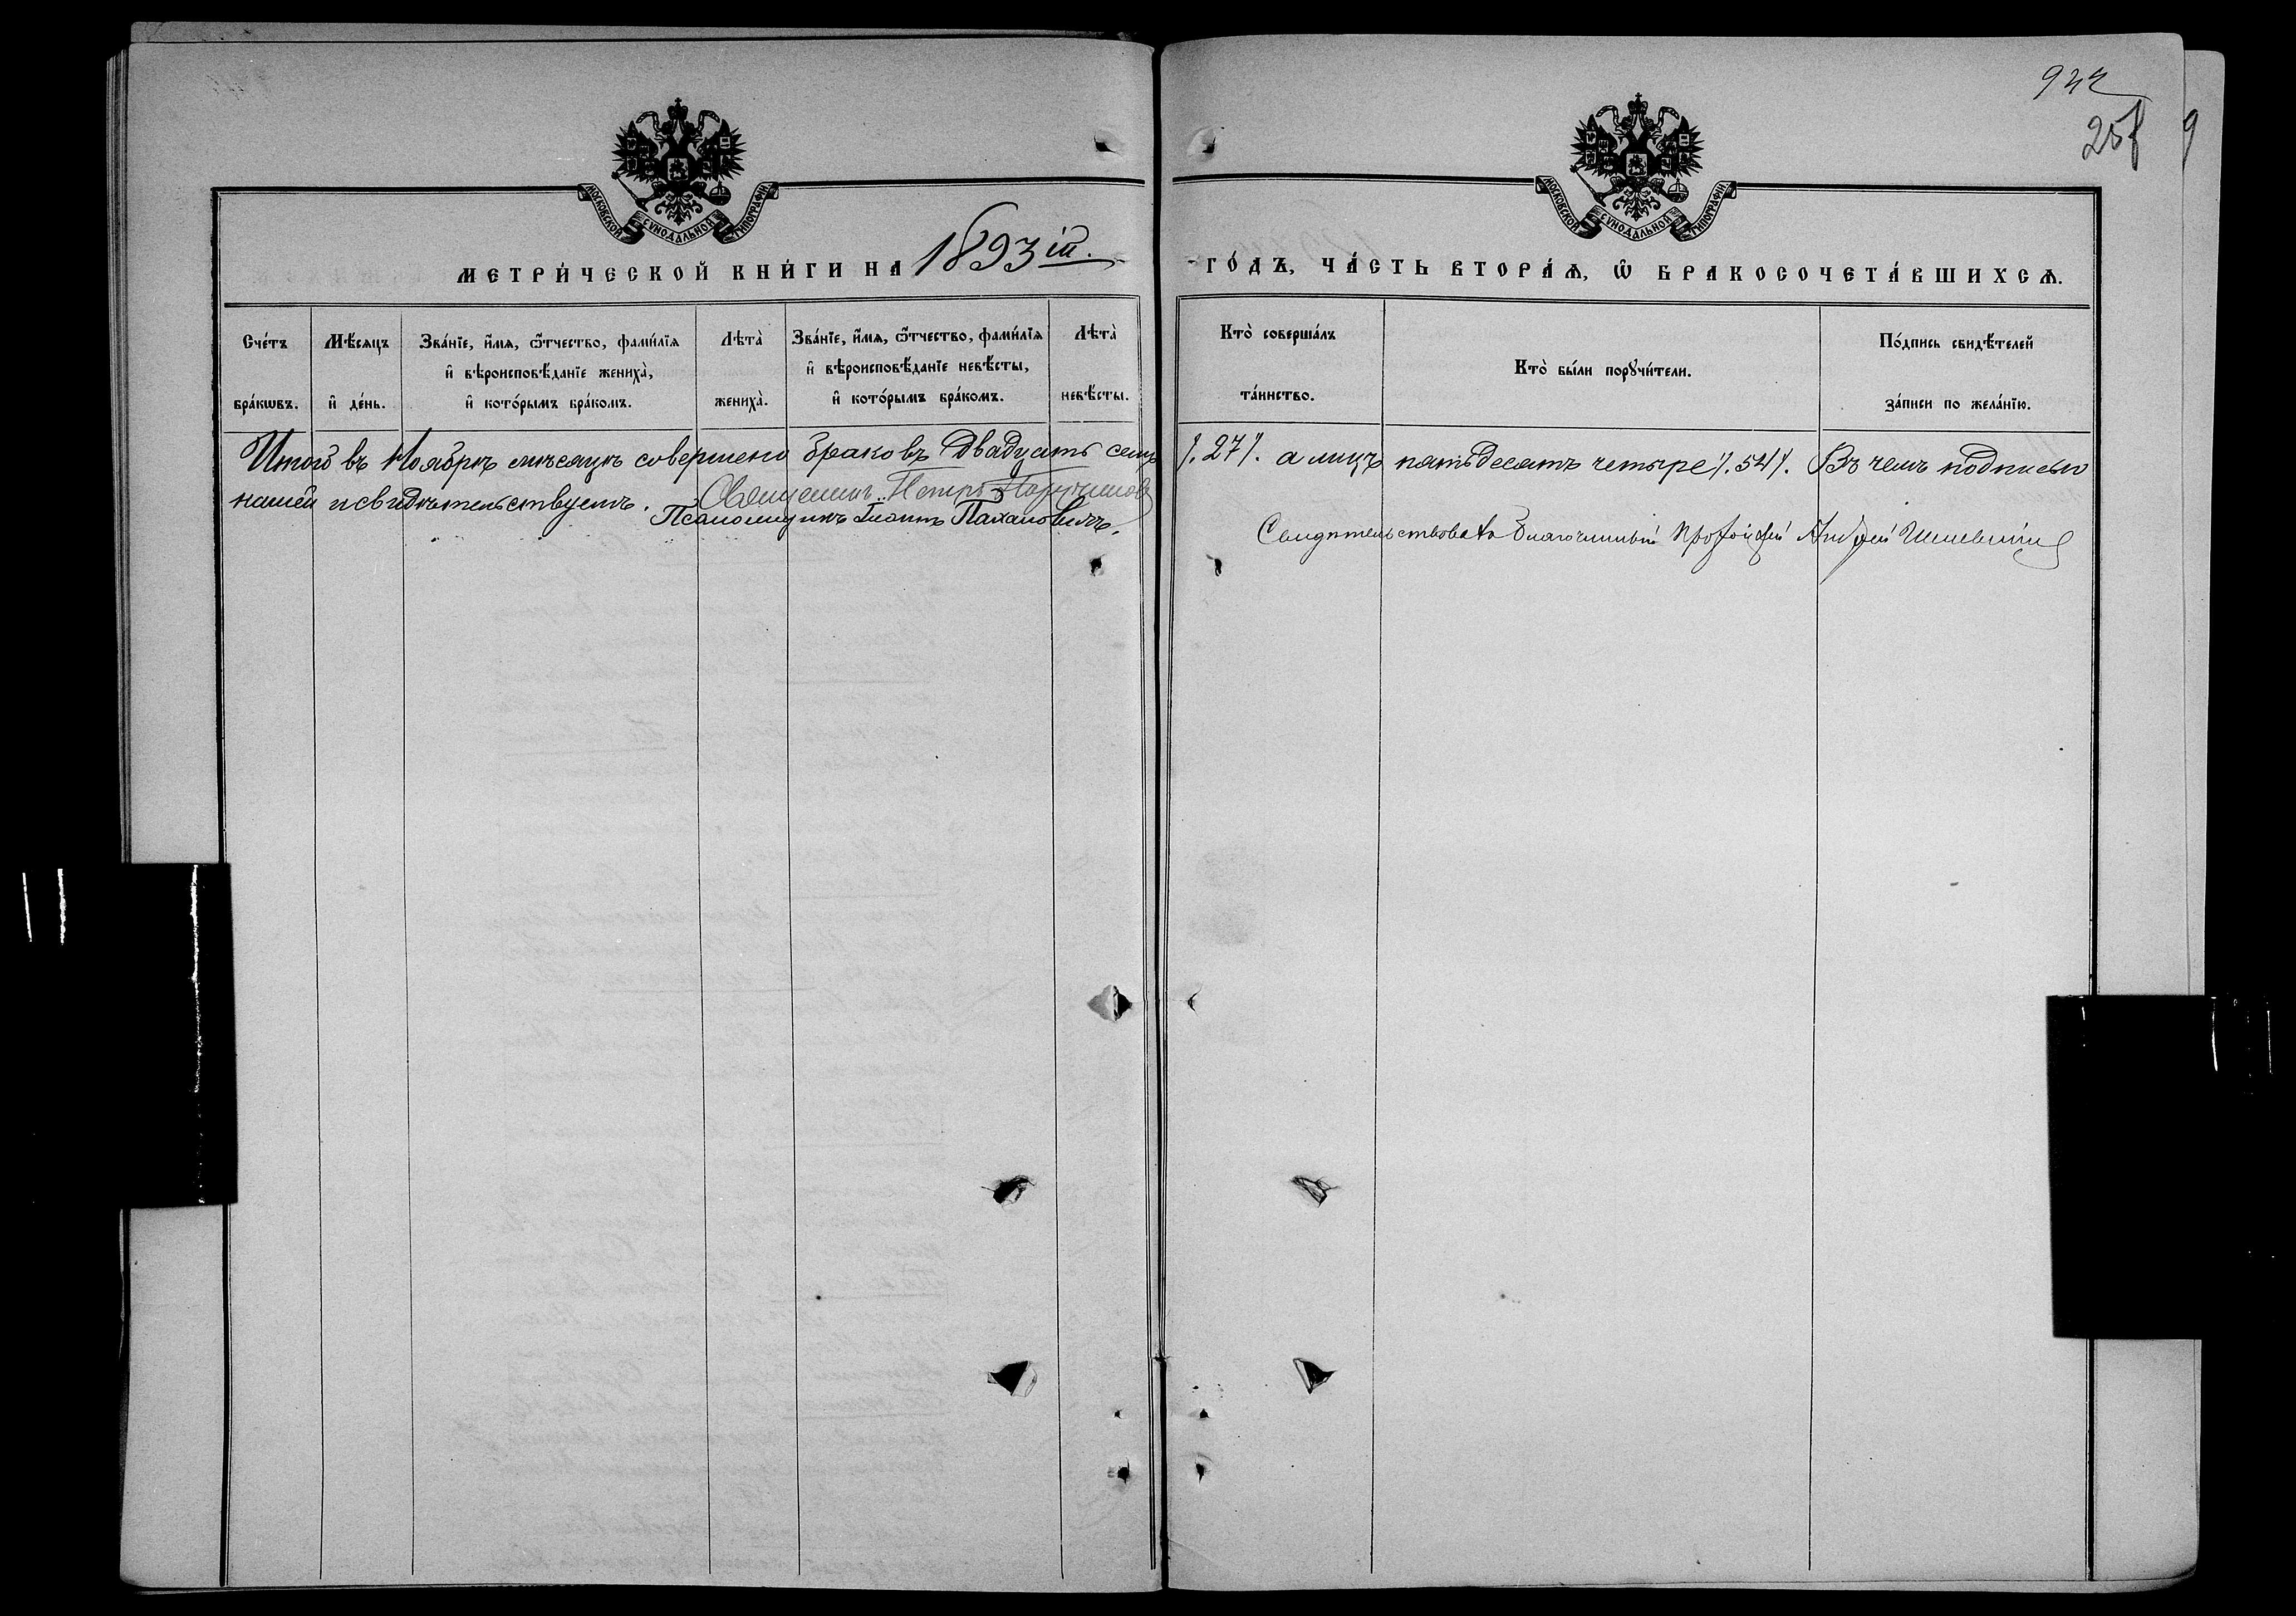 942
25
9
МОСКОВСКОЙ СѴНОДАЛЬНОЙ ТИПОГРАФІИ.
МОСКОВСКОЙ СѴНОДАЛЬНОЙ ТИПОГРАФІИ.
МЕТРИ́ЧЕСКОЙ КНИ́ГИ НА 1893 ій. ГО́ДЪ, ЧА́СТЬ ВТОРА́Ѧ, Ѿ БРАКОСОЧЕТА́ВШИХСѦ.
Сче́тъ бра́кѡвъ.
Мѣ́сяцъ и҆ де́нь.
Зва́нїе, и҆́мя, ѻ҆́тчество, фами́лїя и҆ вѣроисповѣ́данїе жениха̀, и҆ кото́рымъ бра́комъ.
Лѣта̀ жениха̀.
Зва́нїе, и҆́мя, ѻ҆́тчество, фами́лїя и҆ вѣроисповѣ́данїе невѣ́сты, и҆ кото́рымъ бра́комъ.
Лѣта̀ невѣ́сты.
Кто̀ соверша́лъ та́инство.
Кто̀ бы́ли порꙋчи́тели.
По́дпись свидѣ́телей за́писи по жела́нїю.
Итого въ Ноябрѣ мѣсяцѣ совершено браковъ двадцать семь /. 27 /. а лицъ пятьдесятъ четыре /. 54 /. Въ чемъ подписью
нашей и свидѣтельствуемъ. Священникъ Петръ
Псаломщикъ Іоаннъ Пахаловичъ.
Свидѣтельствовалъ благочинный Протоіерей Андрей